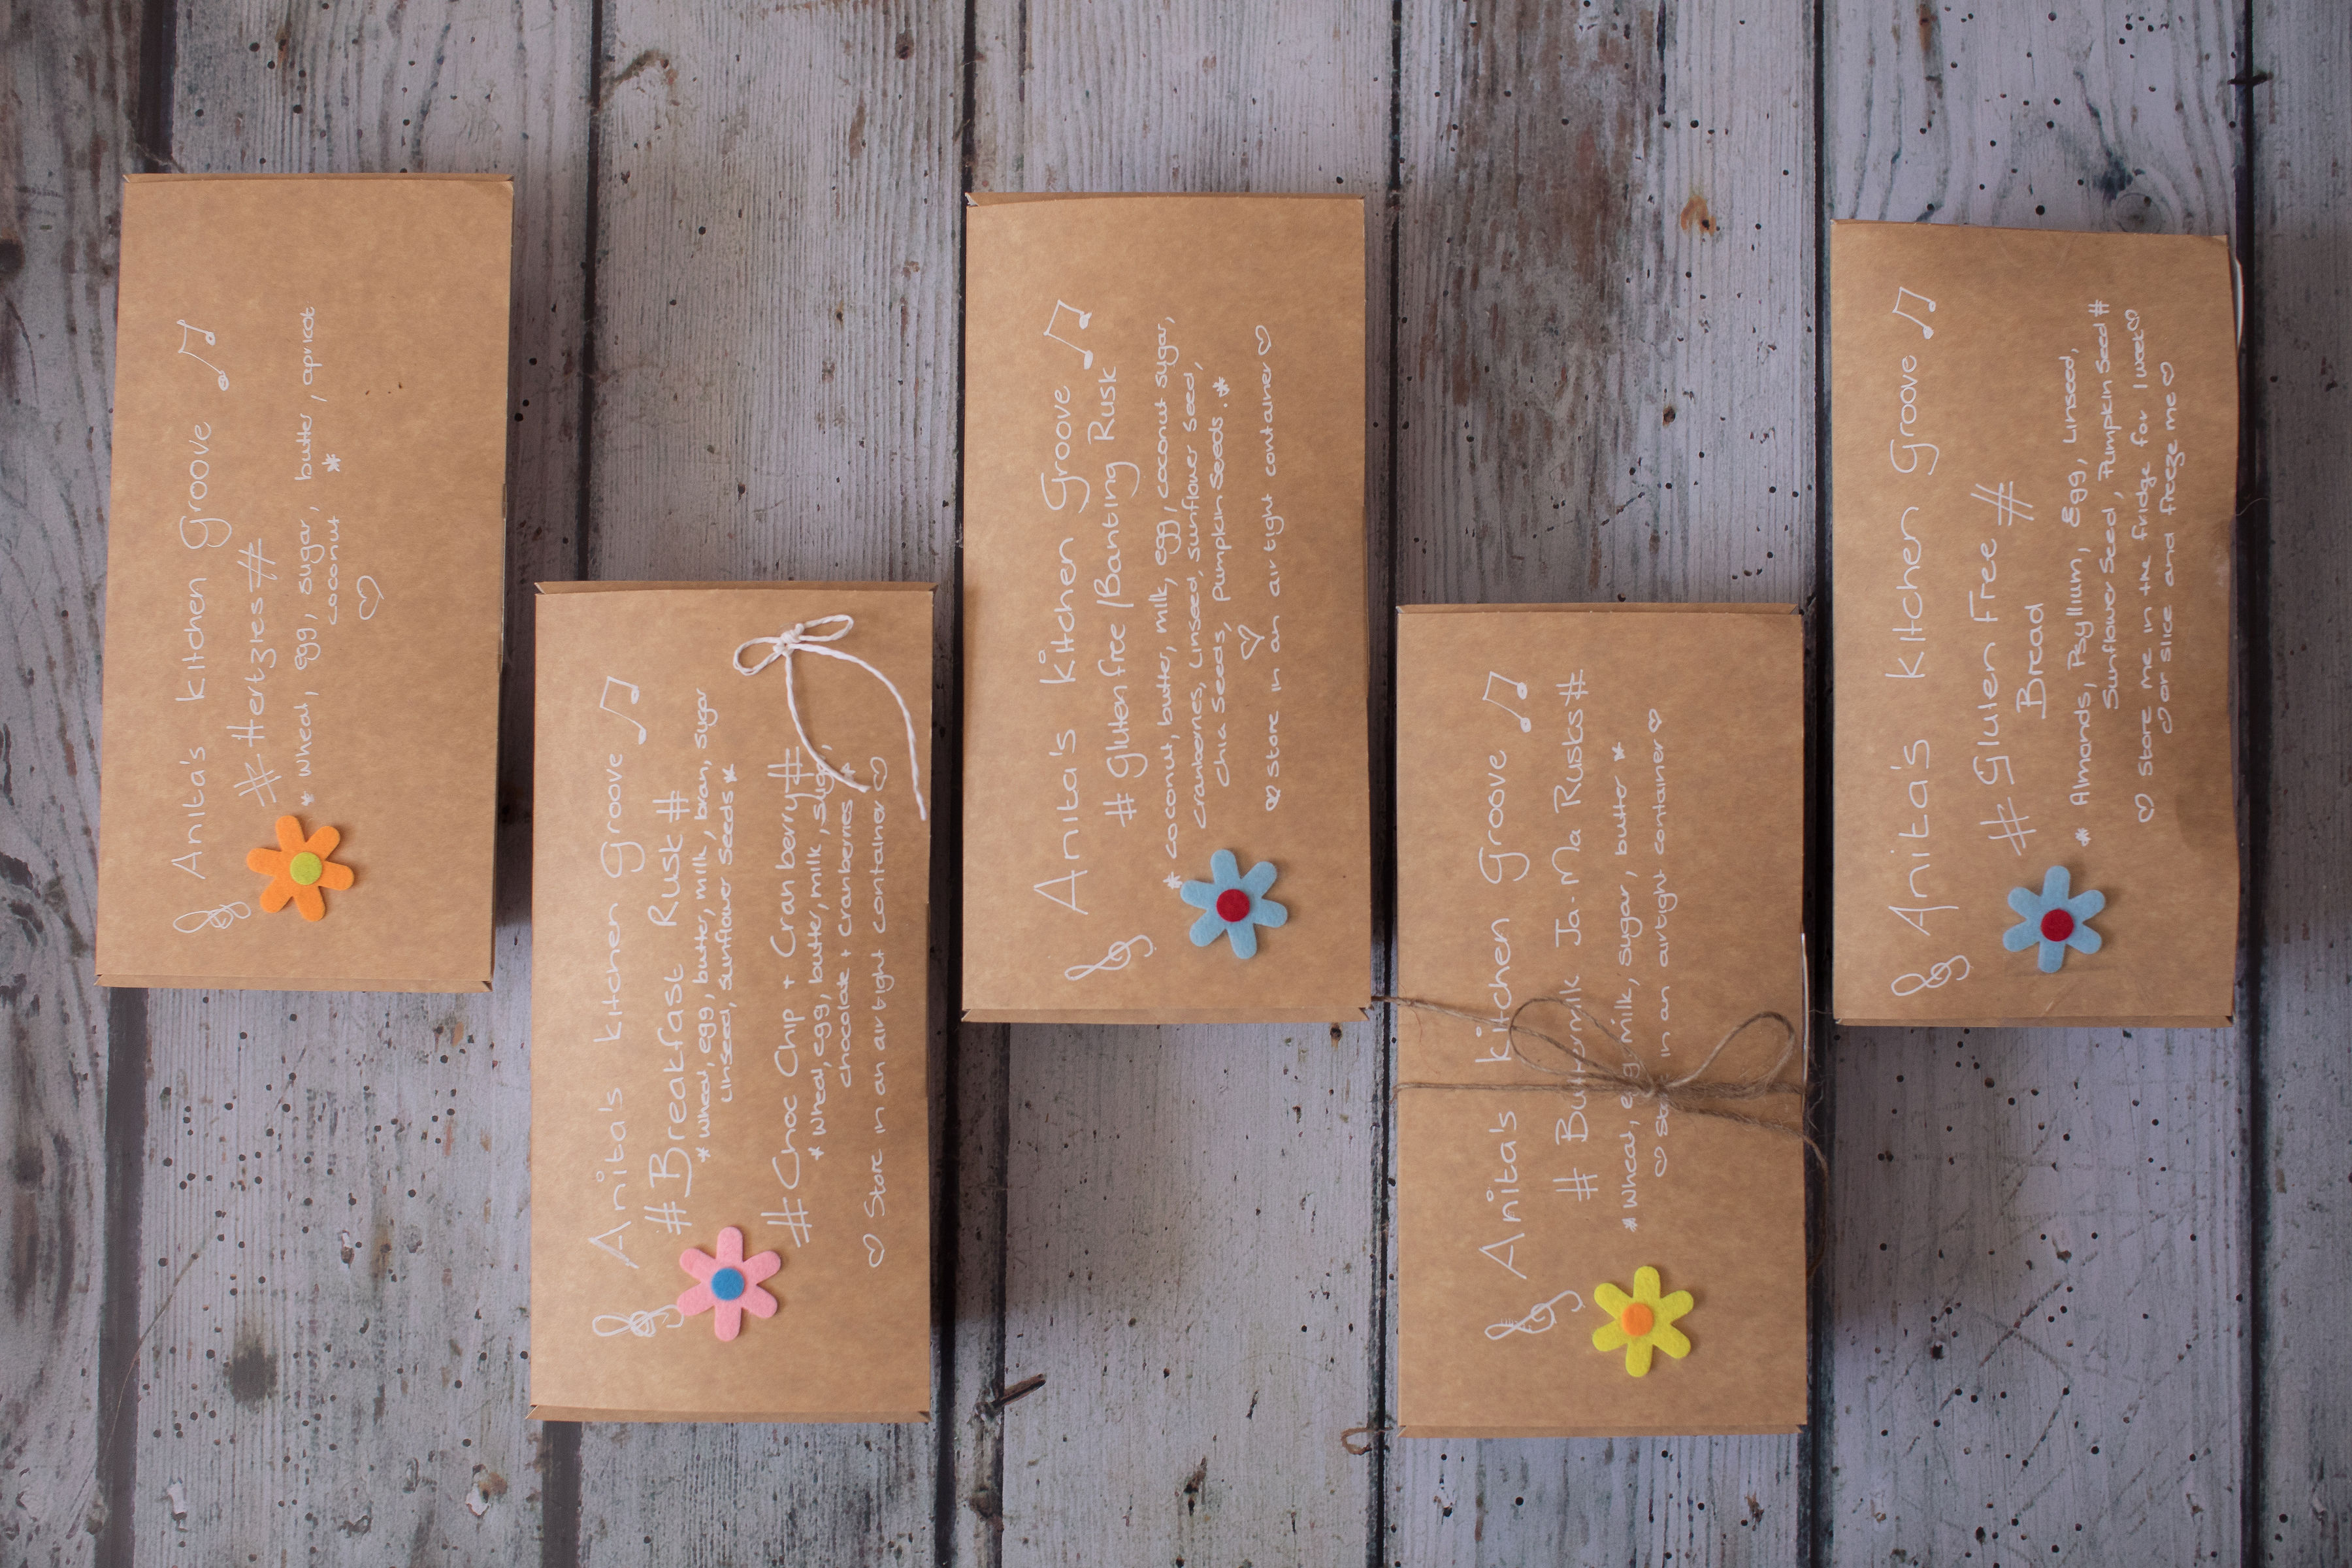 Anita's Kitchen Groove
# Hertzies #
* Wheat, egg, sugar, butter, apricot
coconut *
Anita's kitchen Groove
# Breakfast Rusk #
* Wheat, egg, butter, milk, bran, sugar
Linseed, Sunflower Seeds *
# Choc Chip + Cranberry #
* Wheat, egg, butter, milk, sugar,
chocolate + cranberries *
Store in an air tight container
Anita's Kitchen Groove
# Gluten free / Banting Rusk
* coconut, butter, milk, egg, coconut sugar,
Cranberries, Linseed, sunflower Seed,
Chia Seeds, Pumpkin Seeds. *
Store in an air tight container
Anita's kitchen Groove
# Buttermilk Ja-Ma Rusks #
* Wheat, egg, milk, sugar, butter *
Store in an airtight container
Anita's Kitchen Groove
# Gluten Free #
Bread
* Almonds, Psyllium, Egg, Linseed,
Sunflower Seed, Pumpkin Seed #
Store me in the fridge for 1 week
or slice and freeze me